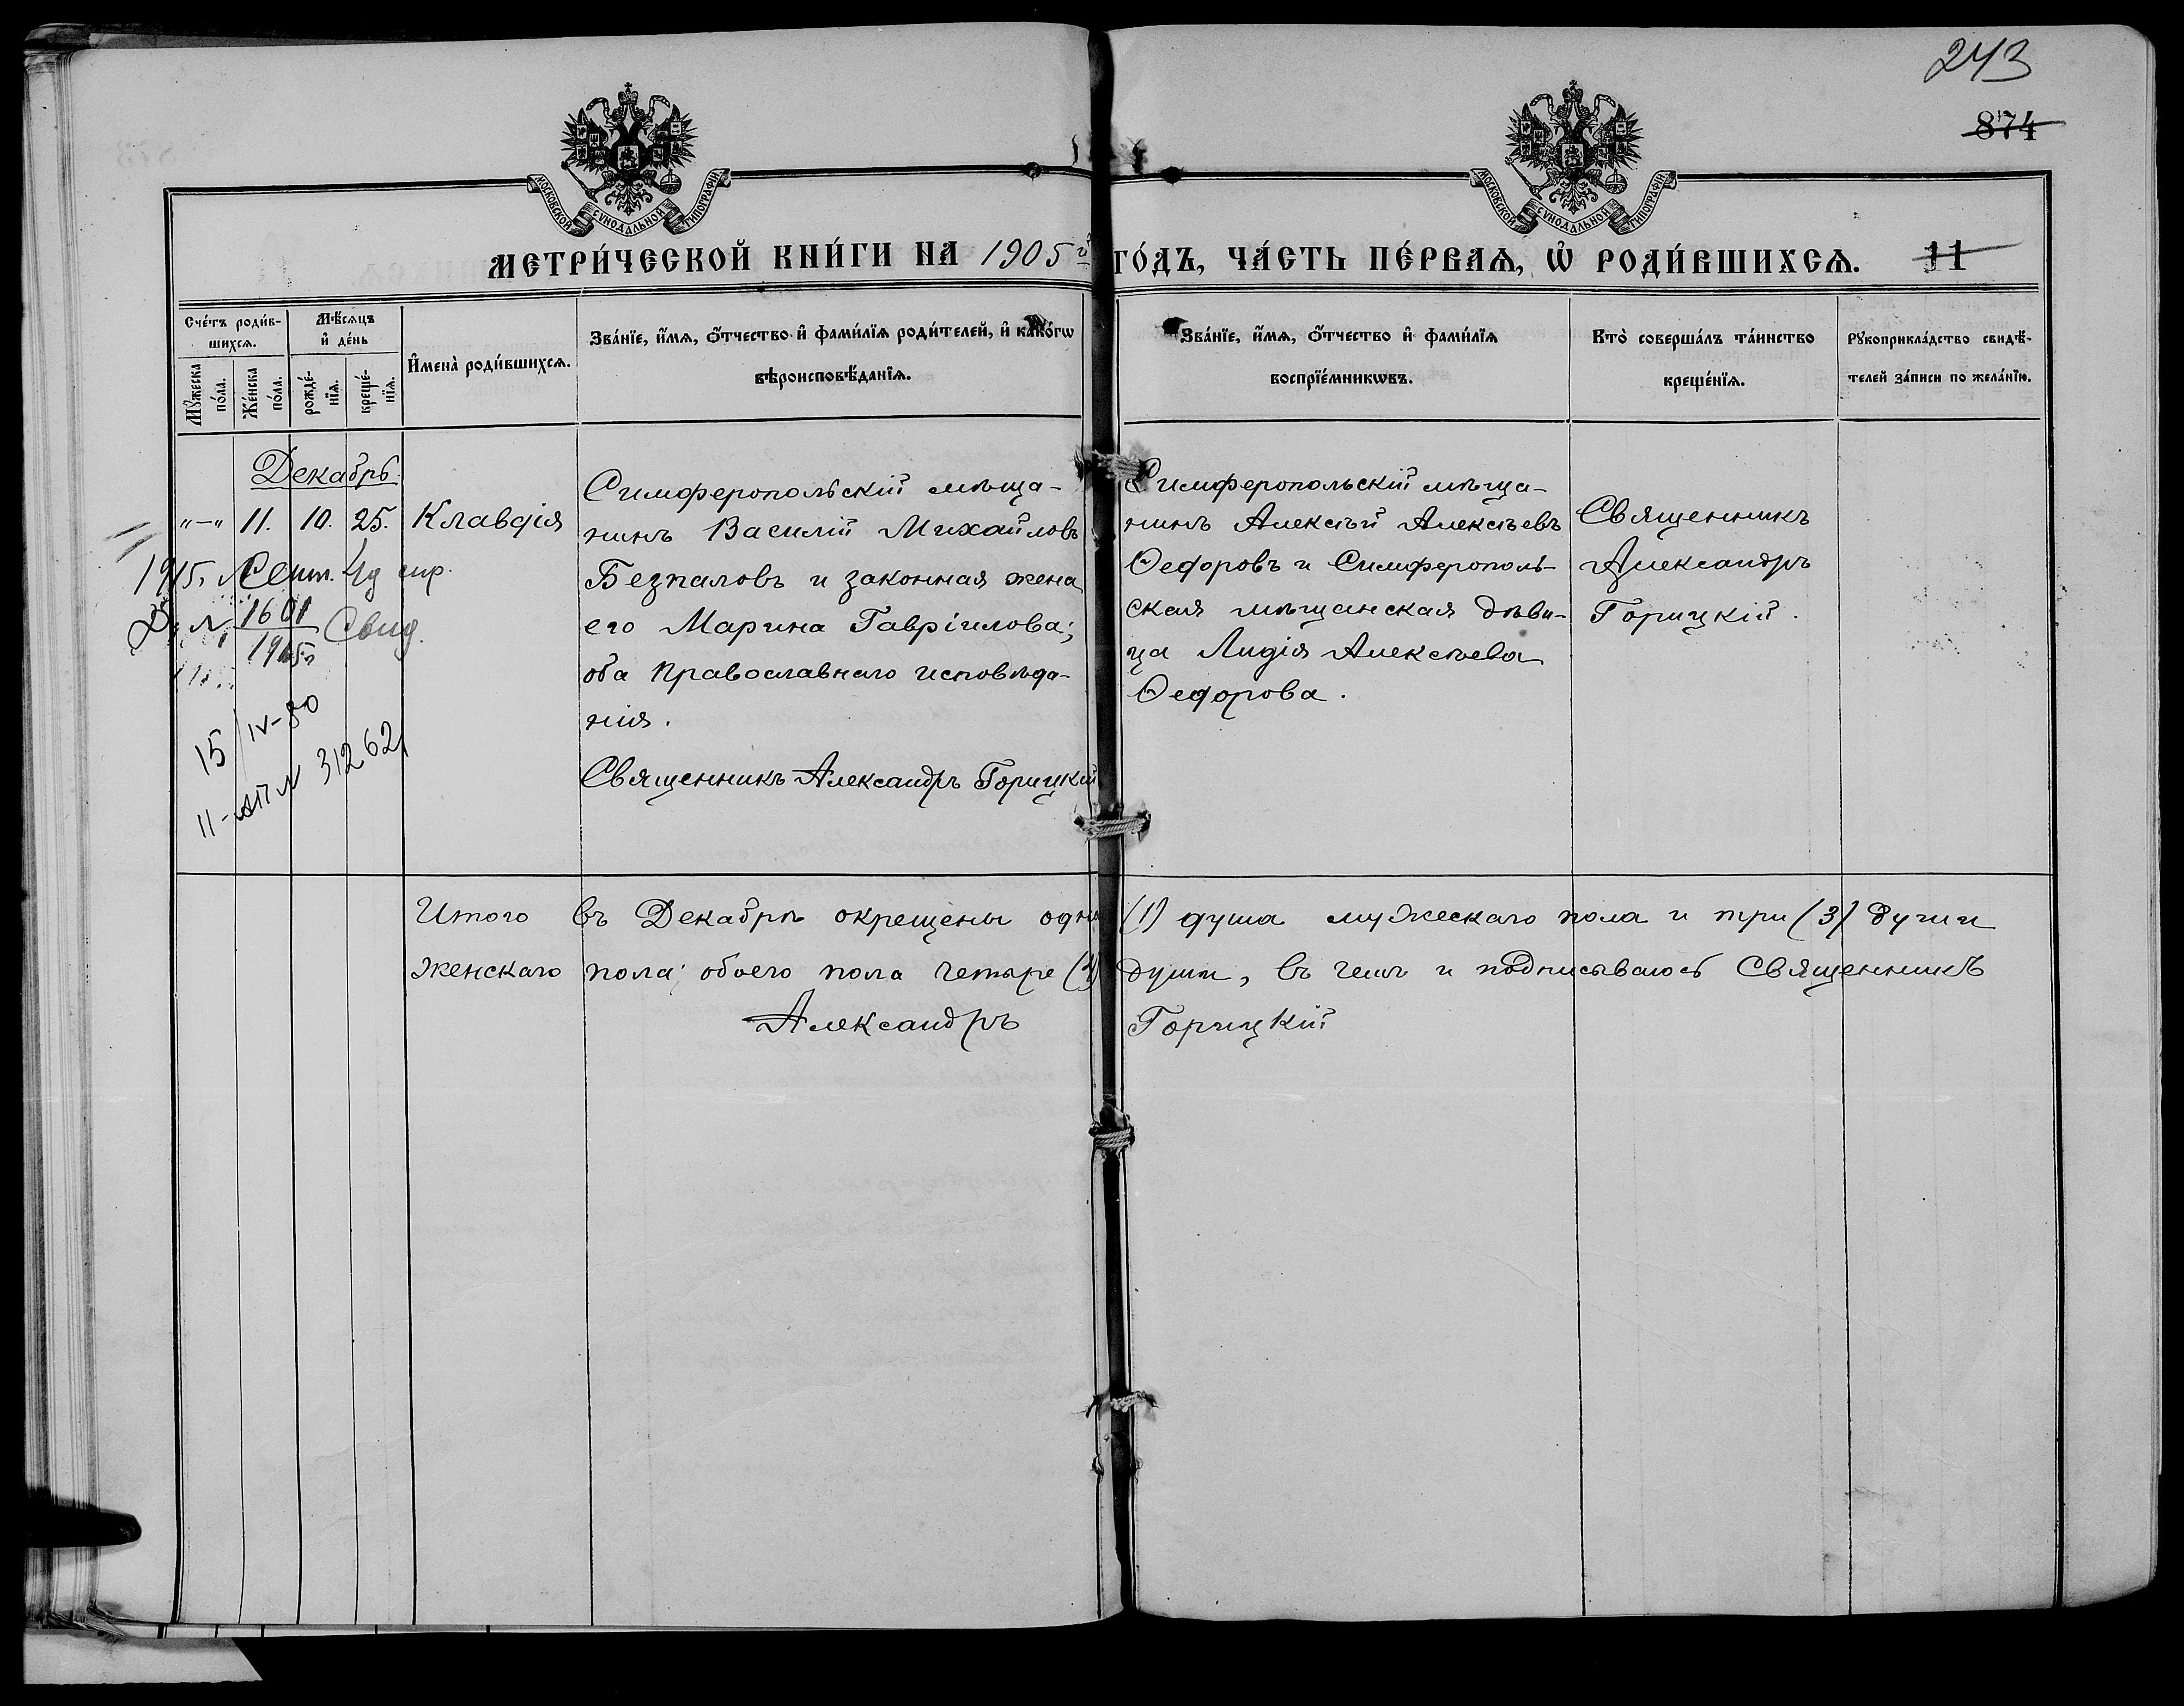 243
874
МОСКОВСКОЙ СѴНОДАЛЬНОЙ ТИПОГРАФІИ
МОСКОВСКОЙ СѴНОДАЛЬНОЙ ТИПОГРАФІИ
МЕТРИ́ЧЕСКОЙ КНИ́ГИ НА 1905й ГО́ДЪ, ЧА́СТЬ ПЕ́РВАѦ, Ѡ҆ РОДИ́ВШИХСѦ. 11
Сче́тъ роди́в-
шихсѧ.
Мꙋ́жеска по́ла.
Же́нска по́ла.
Мѣ́сѧцъ
и҆ де́нь
рожде́-
нїѧ.
креще́-
нїѧ.
И҆мена̀ роди́вшихсѧ.
Зва́нїе, и҆́мѧ, ѻ҆́тчество и҆ фами́лїѧ роди́телей, и҆ како́гѡ
вѣроисповѣ́данїѧ.
Зва́нїе, и҆́мѧ, ѻ҆́тчество и҆ фами́лїѧ
воспрїе́мникѡвъ.
Кто̀ соверша́лъ та́инство
креще́нїѧ.
Рꙋкоприкла́дство свидѣ́-
телей за́писи по жела́нїю.
Декабрь.
"—" 11. 10. 25. Клавдія
Симферопольскій мѣща-
нинъ Василій Михайловъ
Безпаловъ и законная жена
его Марина Гавріилова;
оба Православнаго исповѣда-
нія.
Священникъ Александръ Горицкій
Симферопольскій мѣща-
нинъ Алексѣй Алексѣевъ
Ѳедоровъ и Симферополь-
ская мѣщанская дѣви-
ца Лидія Алексѣева
Ѳедорова.
Священникъ
Александръ
Горицкій.
1915 г. Сент.
1601
1915 г. Свид.
15/IV-80
11-АП № 31262
Итого въ Декабрѣ окрещены одна (1) душа мужескаго пола и три (3) души
женскаго пола; обоего пола четыре (4) души, въ чемъ и подписываюсь Священникъ
Александръ Горицкій